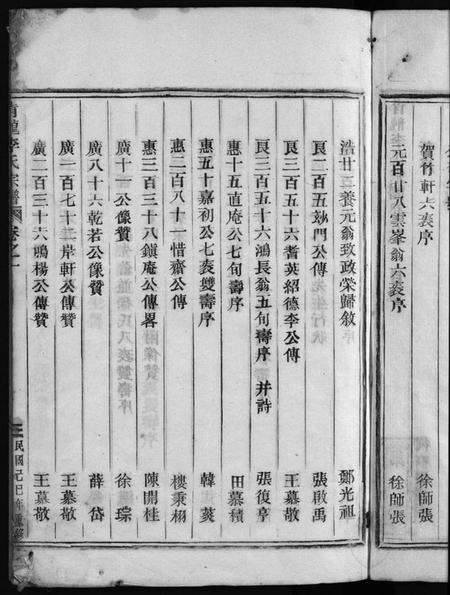 賀竹軒六袠序 徐師張
元百廿八雲峯翁六袠序 徐師張
浩廿三養元翁致政榮歸敘 鄭光祖
良二百五妙門公傳 張啟禹
良三百五十六耆英紹德李公傳 王慕敬
良三百五十六鴻長翁五旬壽序 并詩 張復亨
惠十五直庵公七旬壽序 田慕積
惠五十嘉初公七袠雙壽序 韓菼
惠二百八十一惜齋公傳 樓秉栩
惠三百三十八鎮庵公傳畧 陳開桂
廣十一 公像贊 徐琮
廣八十六乾若公像贊 薛岱
廣一百七十 岸軒公傳贊 王慕敬
廣二百三十六鳴楊公傳贊 王慕敬
李氏宗譜 卷之一 民國己巳年重修